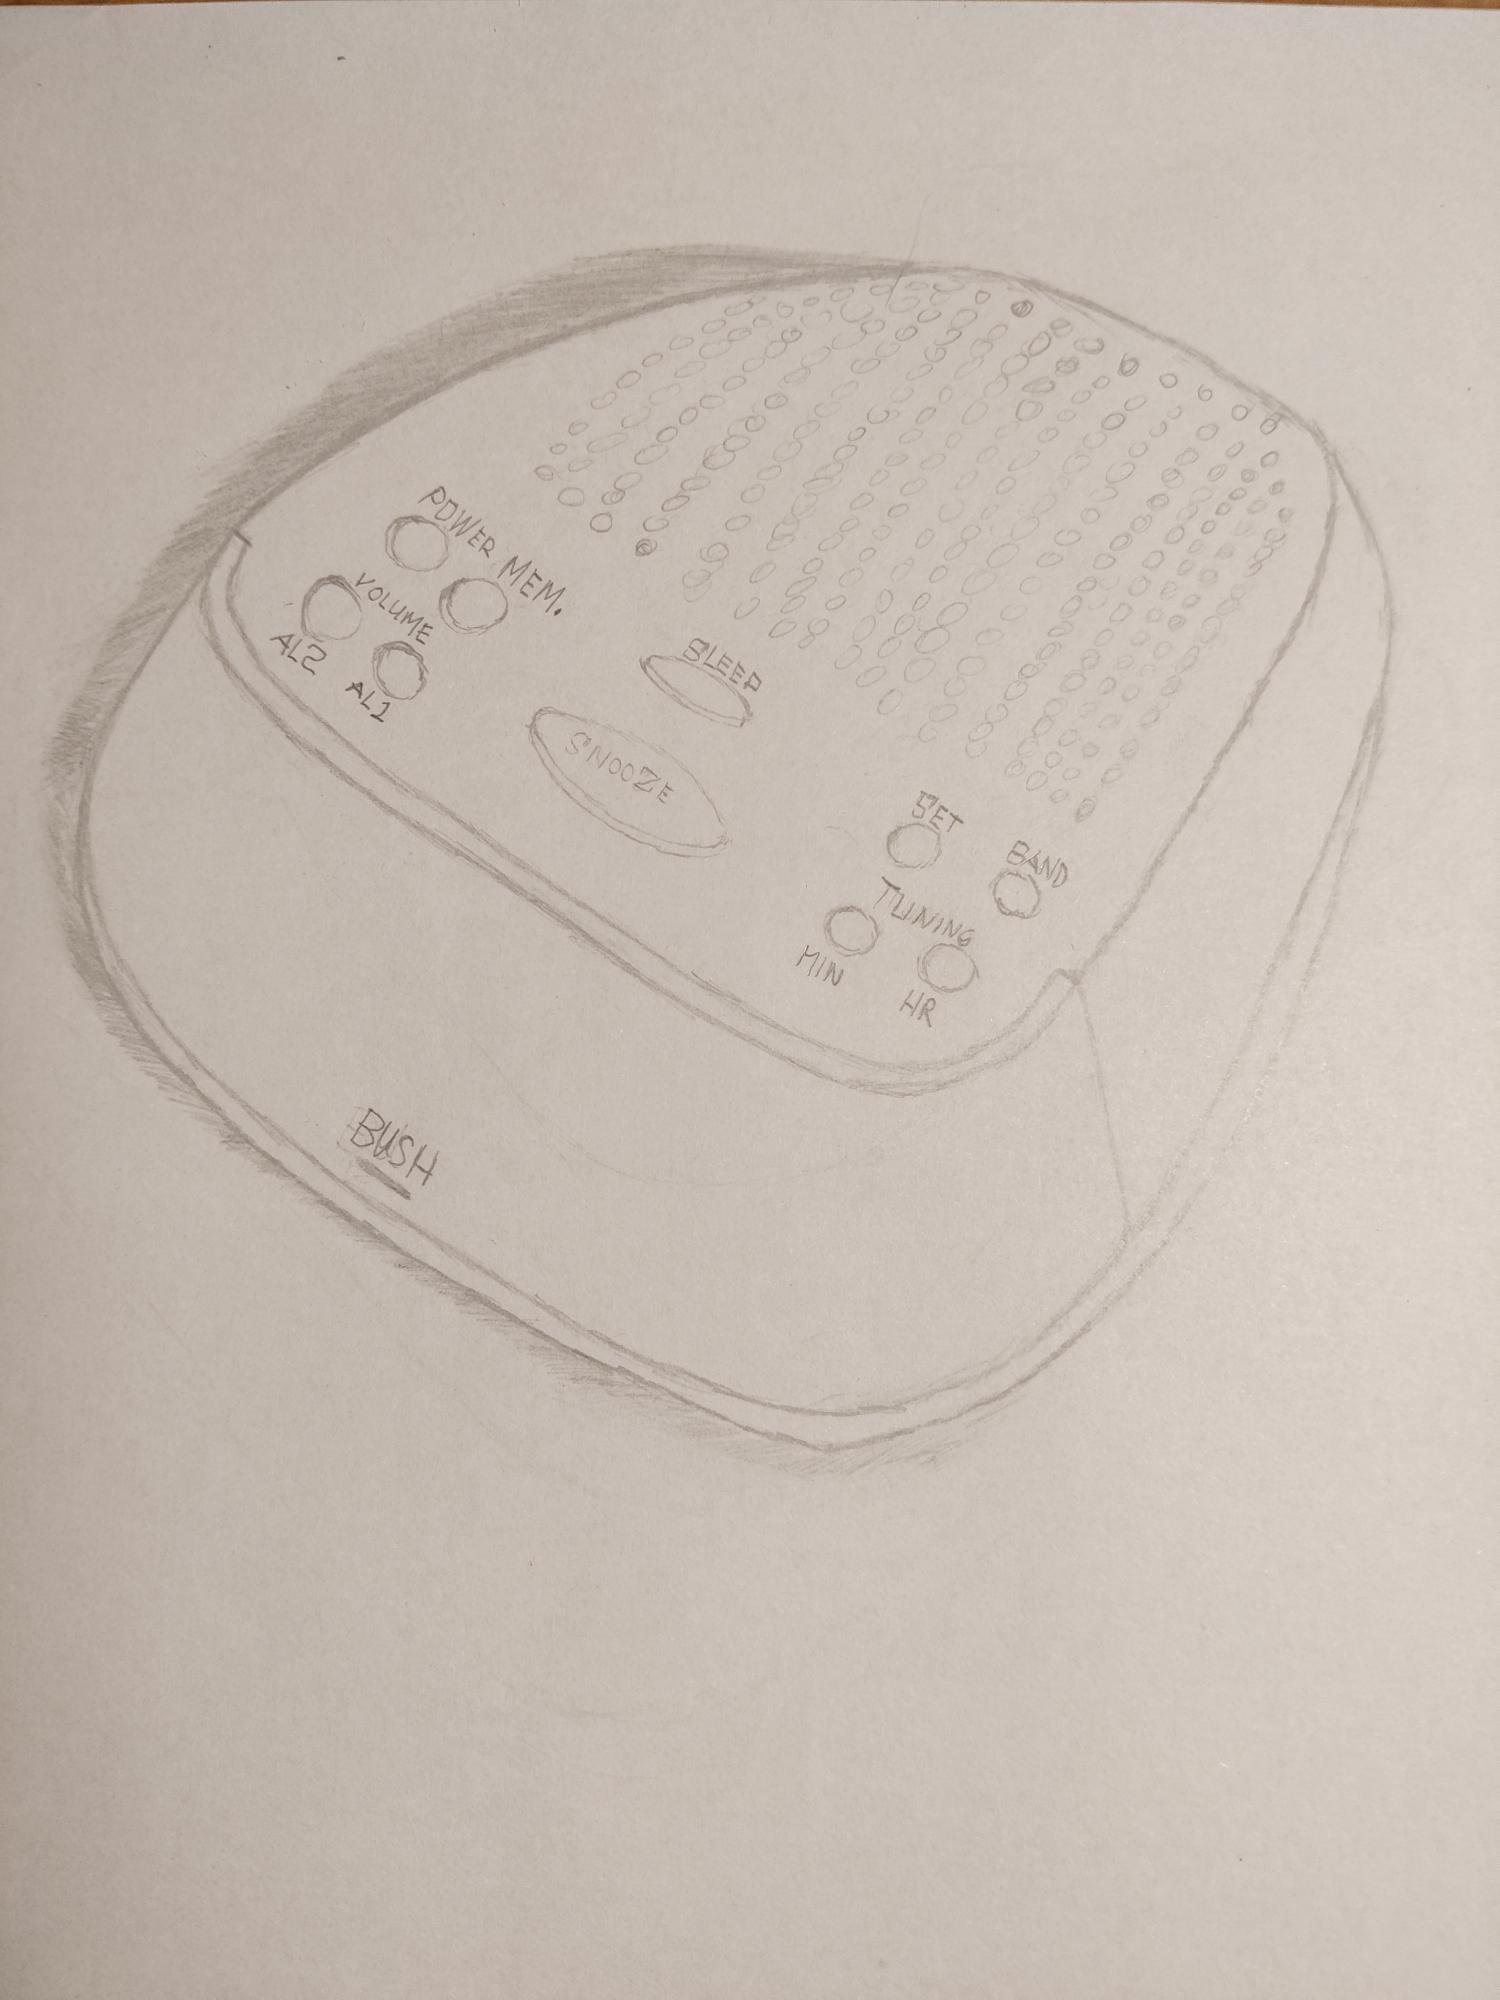 POWER
MEM.
VOLUME
AL2
AL1
SLEEP
SNOOZE
SET
BAND
TUNING
MIN
HR
BUSH